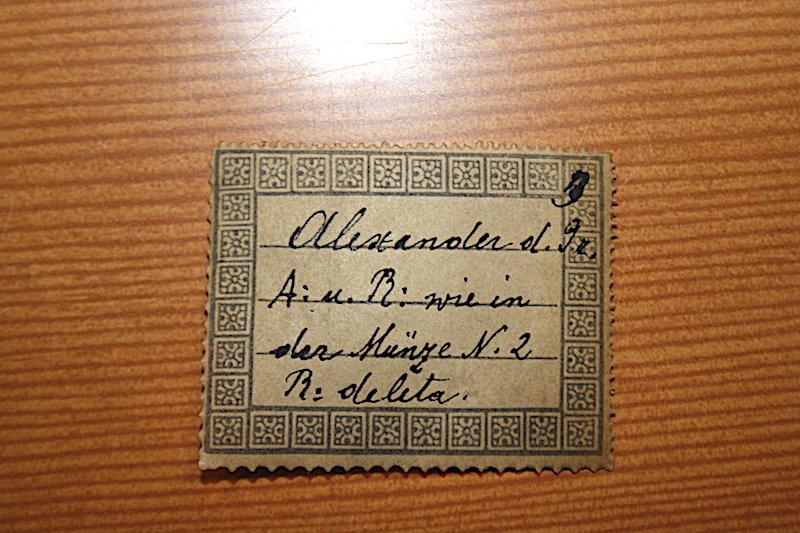 3
Alexander d. Gr.
A: u. R: wie in
der Münze N. 2
R: deleta.